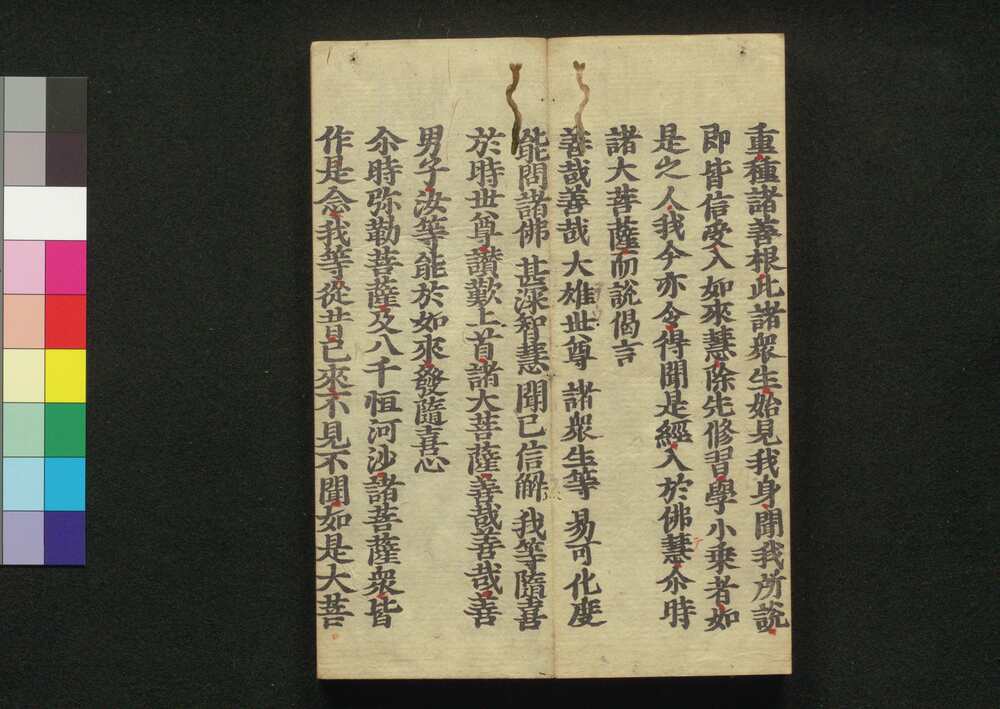 重種諸善根此諸衆生始見我身聞我所説
即皆信受入如來慧除先修習學小乘者如
是之人我今亦令得聞是經入於佛慧尒時
諸大菩薩而説偈言
善哉善哉 大雄世尊 諸衆生等 易可化度
能問諸佛 甚深智慧 聞已信解 我等隨喜
於時世尊讃歎上首諸大菩薩善哉善哉善
男子汝等能於如來發隨喜心
尒時弥勒菩薩及八千恒河沙諸菩薩衆皆
作是念我等從昔已來不見不聞如是大菩